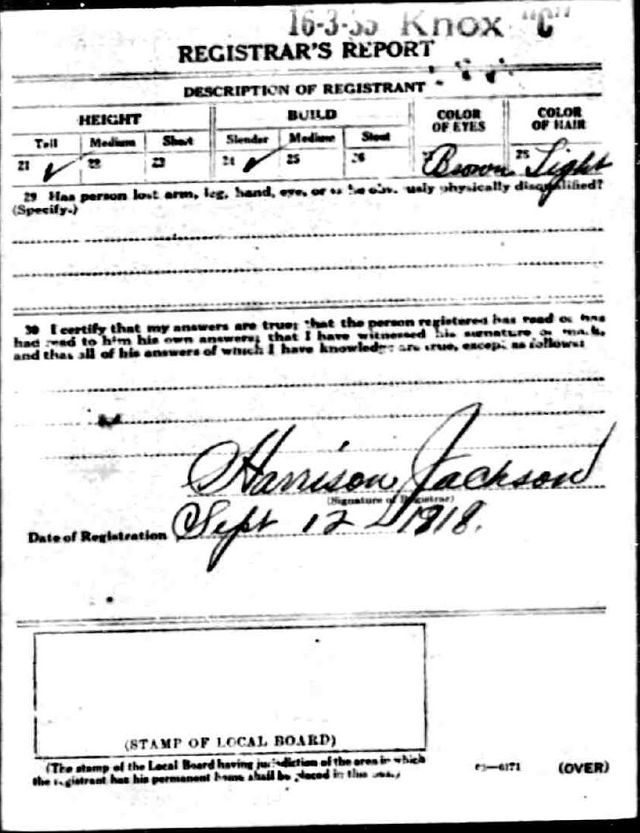 16-3-35 Knox "C"
REGISTRAR'S REPORT
DESCRIPTION OF REGISTRANT
HEIGHT BUILD COLOR OF EYES COLOR OF HAIR
Tall Medium Short Slender Medium Stout
21 ✓ 22 23 24 ✓ 25 26 Brown 28 Light
29 Has person lost arm, leg, hand, eye, or is he obviously physically disqualified?
(Specify.)
30 I certify that my answers are true; that the person registered has read or has
had read to him his own answers; that I have witnessed his signature or mark,
and that all of his answers of which I have knowledge are true, except as follows:
Harrison Jackson
(Signature of Registrar)
Date of Registration Sept 12 1918.
(STAMP OF LOCAL BOARD)
(The stamp of the Local Board having jurisdiction of the area in which
the registrant has his permanent home shall be placed in this box.)
—6171 (OVER)